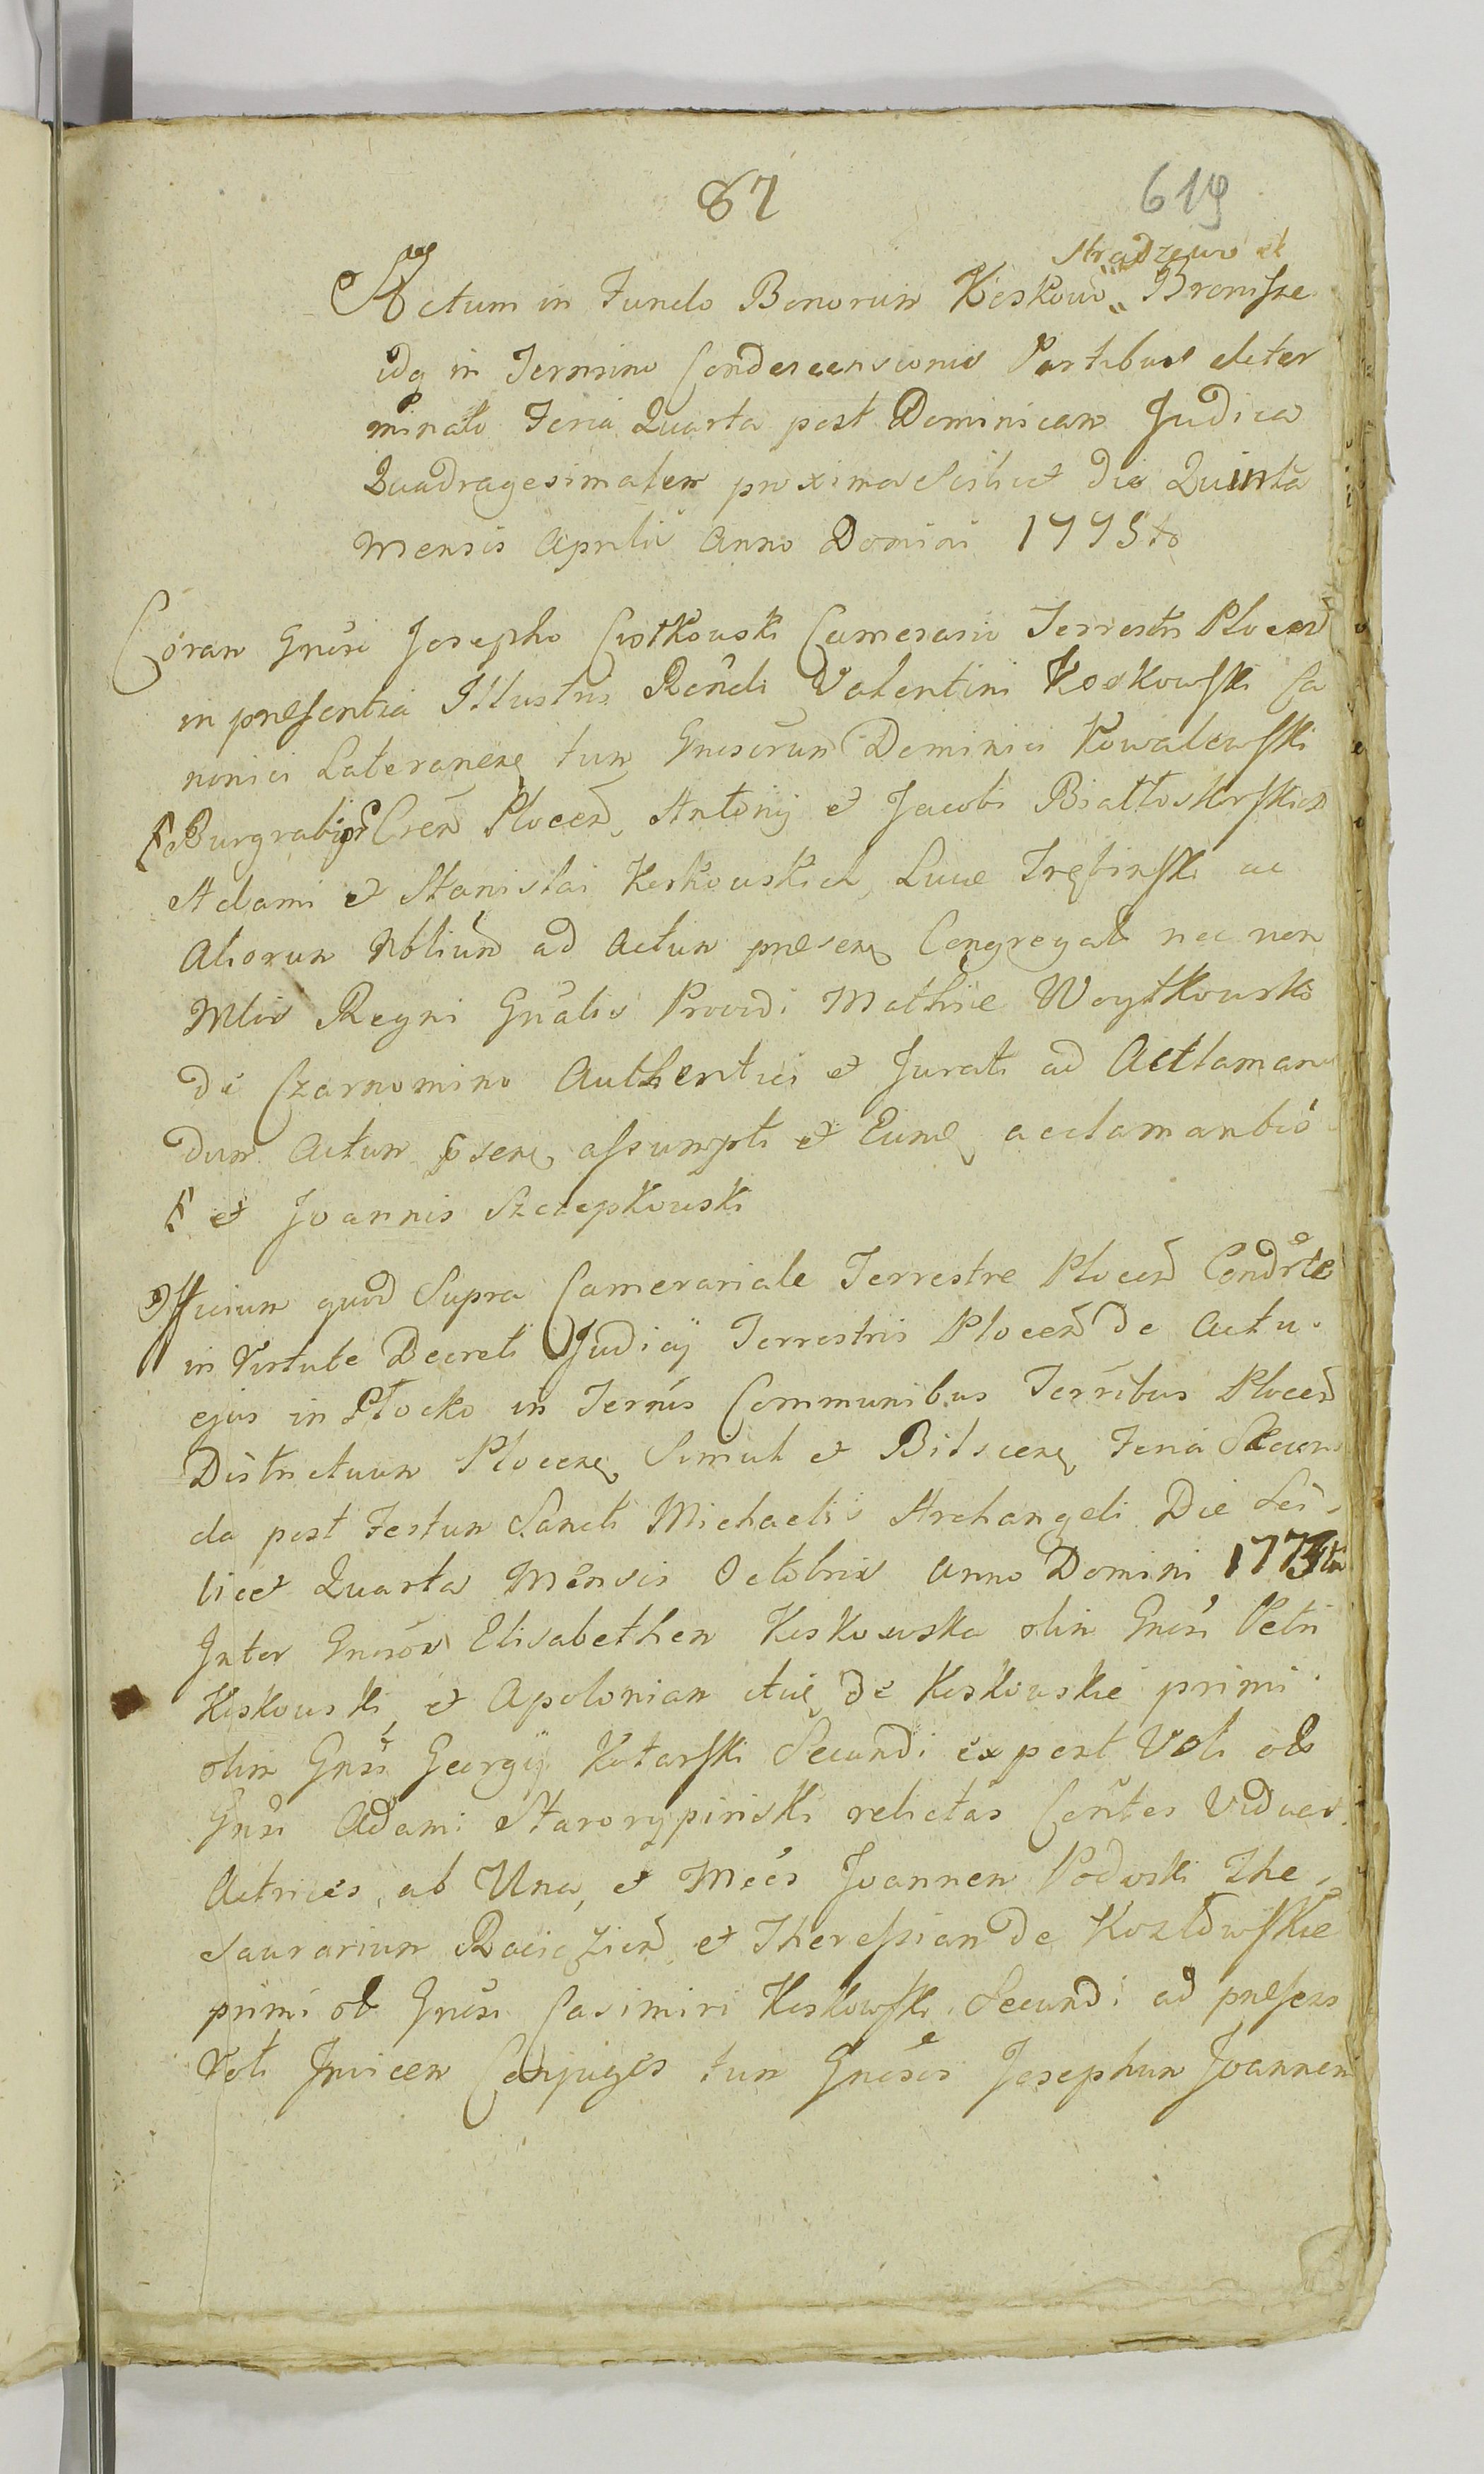 67
619
Stradzewo et
Actum in Fundo Bonorum Keskowo Bronisze
idq in Termino Condescensionis Partibus deter
minato Feria Quarta post Dominicam Judica
Quadragesimalem proxima Scilicet die Quinta
Mensis Aprilis Anno Domini 1775to
Coram Gnoso Josepho Ciotkowski Camerario Terrestri Plocen
in presentia Illustris Rendi Valentini Koskowski Ca
nonici Lateranen tum Gnosorum Dominici Kowalewski
Burgrabij Cren Plocen, Antonij et Jacobi Białłoskorskich
Adami et Stanislai Keskowskich, Lucæ Trębinski ac
Aliorum Nblium ad Actum præsen Congregat nec non
Mlis Regni Gnalis Providi Mathiæ Woytkowski
de Czarnomino Authentici et Jurati ad Acclaman
dum Actum psen, assumpti et Eund acclamantis
et Joannis Szczepkowski
Officium quod Supra Camerariale Terrestre Plocen Condrte
in Virtute Decreti Judicij Terrestris Plocen de Actu
ejus in Płocko in Ternis Communibus Terribus Plocen
Districtuum Plocen Simul et Bilscen Feria Secun
da post Festum Sancti Michaelis Archangeli Die Sci
licet Quarta Mensis Octobris Anno Domini 1773tio
Inter Gnosos Elisabetham Keskowska olim Gnosi Petri
Keskowski, et Apolonian itid de Keskowskie primi
olim Gnsi Georgij Kotarski Secundi expert Voti olo
Gnsi Adami Starorypinski relictas Centes Viduas
Actrices, ab Una, et Mcos Joannem Podoski The
saurarium Raciążien et Theressiam de Kozłowskie
primi ol Gnosi Casimiri Keskowski Secundi ad præsens
Voti Invicem Conjuges tum Gnosos Josephum Joannem